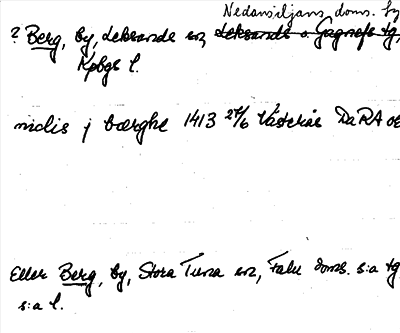 Nedansiljans doms. by
? Berg, by, Leksands sn, Leksands o. Gagnefs tg,
Kpbgs l.
niclis j bærghe 1413 27/6 Västerås DaRA or
Eller Berg, by, Stora Tuna sn, Falu doms. s:a tg
s:a l.